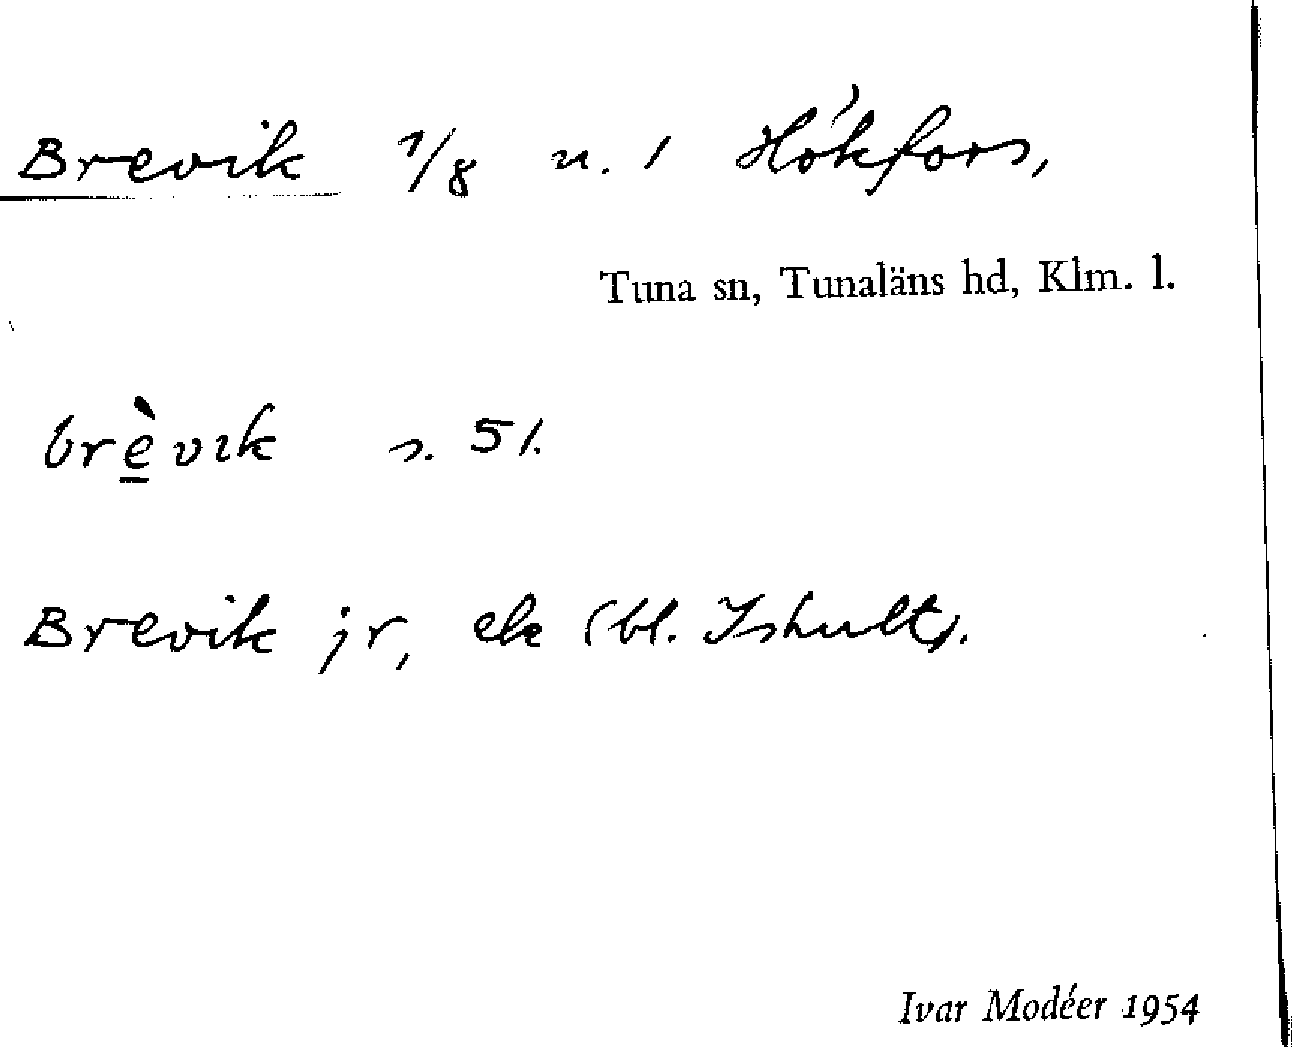 Brevik 1/8 n. 1 Hökfors,
Tuna sn, Tunaläns hd, Klm. l.
brèvik s. 51.
Brevik jr, ek (bl. Ishult).
Ivar Modéer 1954